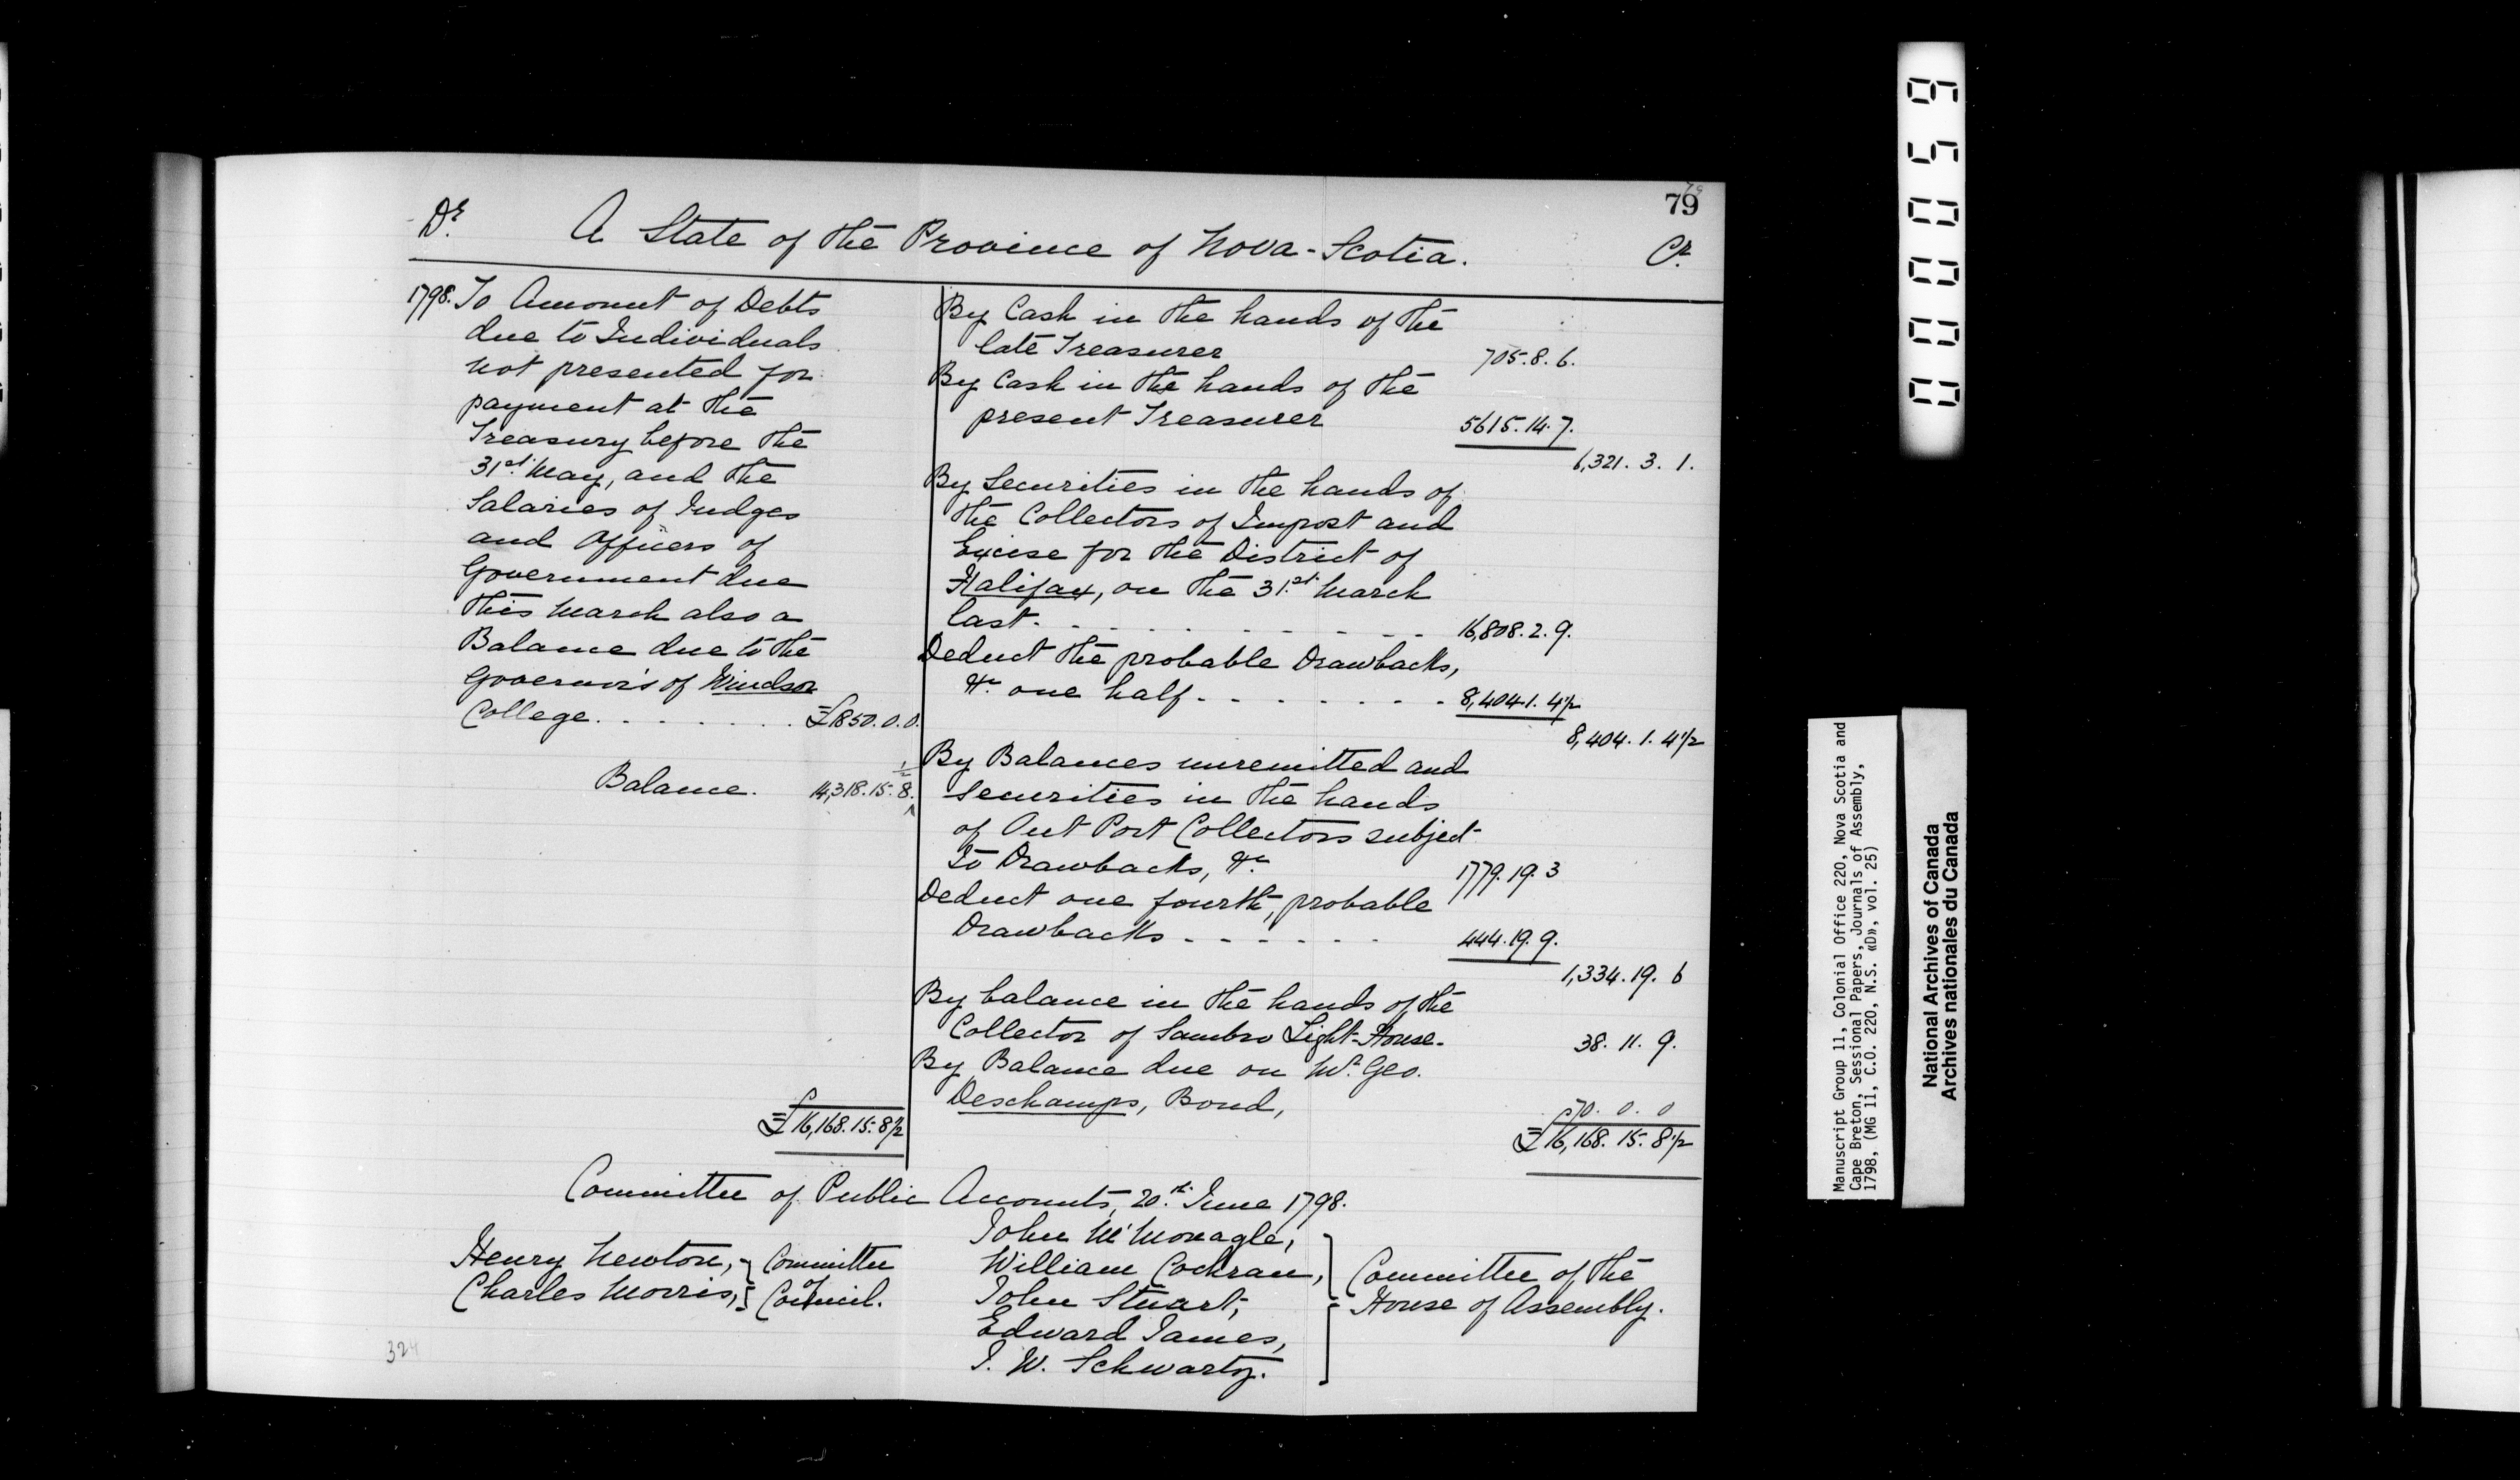 79
Dr. A State of the Province of Nova-Scotia. Cr.
1798. To Amount of Debts
due to Individuals
not presented for
payment at the
Treasury before the
31st May, and the
Salaries of Judges
and Officers of
Government due
this March also a
Balance due to the
Governors of Windsor
College. . . . . . . . £1850. 0. 0.
Balance. 14,318. 15. 8 1/2.
£16,168. 15. 8 1/2
By Cash in the hands of the
late Treasurer 705. 8. 6.
By Cash in the hands of the
present Treasurer 5615. 14. 7.
6,321. 3. 1.
By Securities in the hands of
the Collectors of Impost and
Excise for the District of
Halifax, on the 31st. March
last. - - - - - - - - - 16,808. 2. 9.
Deduct the probable Drawbacks,
&c. one half - - - - - - - 8,404. 1. 4 1/2
8,404. 1. 4 1/2
By Balances unremitted and
Securities in the hands
of Out Port Collectors subject
to Drawbacks, &c. 1779. 19. 3
Deduct one fourth, probable
Drawbacks - - - - - - 444. 19. 9.
1,334. 19. 6
By balance in the hands of the
Collector of Sambro Light-House. 38. 11. 9.
By Balance due on Mr. Geo.
Deschamps, Bond, 70. 0. 0
£16,168. 15. 8 1/2
Committee of Public Accounts, 20th. June 1798.
Henry Newton, } Committee
Charles Morris, } of Council.
John McMonagle,
William Cochran,
John Stuart,
Edward James,
J. W. Schwartz.
} Committee of the
House of Assembly.
324
000059
Manuscript Group 11, Colonial Office 220, Nova Scotia and
Cape Breton, Sessional Papers, Journals of Assembly,
1798, (MG 11, C.O. 220, N.S. «D», vol. 25)
National Archives of Canada
Archives nationales du Canada